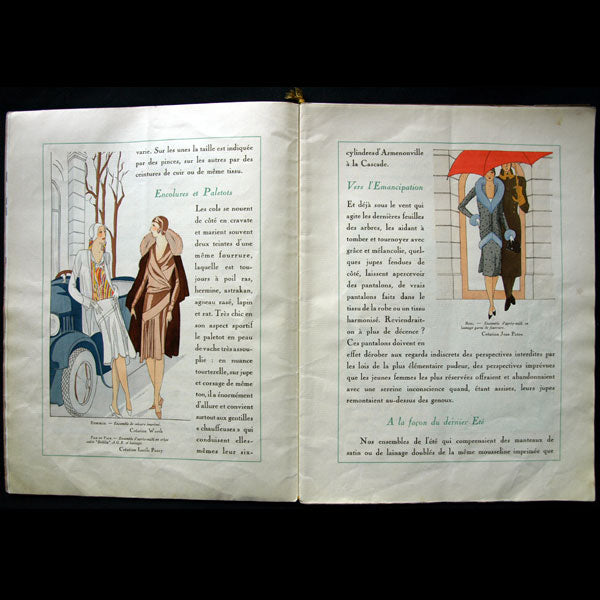 varie. Sur les unes la taille est indiquée
par des pinces, sur les autres par des
ceintures de cuir ou de même tissu.
Encolures et Paletots
Les cols se nouent
de côté en cravate
et marient souvent
deux teintes d'une
même fourrure,
laquelle est tou-
jours à poil ras,
hermine, astrakan,
agneau rasé, lapin
et rat. Très chic en
son aspect sportif
le paletot en peau
de vache très assou-
plie : en nuance
tourterelle, sur jupe
et corsage de même
ton, il a énormément
d'allure et convient
surtout aux gentilles
« chauffeuses » qui
conduisent elles-
mêmes leur six-
Création Worth
Création Lucile Paray
cylindres d'Armenonville
à la Cascade.
Vers l'Emancipation
Et déjà sous le vent qui
agite les dernières feuilles
des arbres, les aidant à
tomber et tournoyer avec
grâce et mélancolie, quel-
ques jupes fendues de
côté, laissent apercevoir
des pantalons, de vrais
pantalons faits dans le
tissu de la robe ou un tissu
harmonisé. Reviendrait-
on à plus de décence ?
Ces pantalons doivent en
effet dérober aux regards indiscrets des perspectives interdites par
les lois de la plus élémentaire pudeur, des perspectives imprévues
que les jeunes femmes les plus réservées offraient et abandonnaient
avec une sereine inconscience quand, étant assises, leurs jupes
remontaient au-dessus des genoux.
Ensemble d'après-midi en
lainage garni de fourrure.
Création Jean Patou
A la façon du dernier Eté
Nos ensembles de l'été qui comprenaient des manteaux de
satin ou de lainage doublés de la même mousseline imprimée que